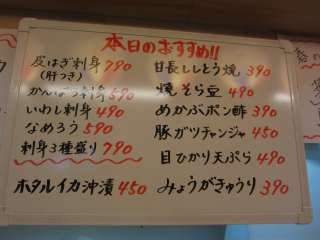 本日のおすすめ!!
皮はぎ刺身 790
(肝つき)
かんぱち刺身 590
いわし刺身 490
なめろう 590
刺身3種盛り 790
ホタルイカ沖漬 450
甘長ししとう焼 390
焼そら豆 490
めかぶポン酢 390
豚ガツチャンジャ 450
目ひかり天ぷら 490
みょうがきゅうり 390